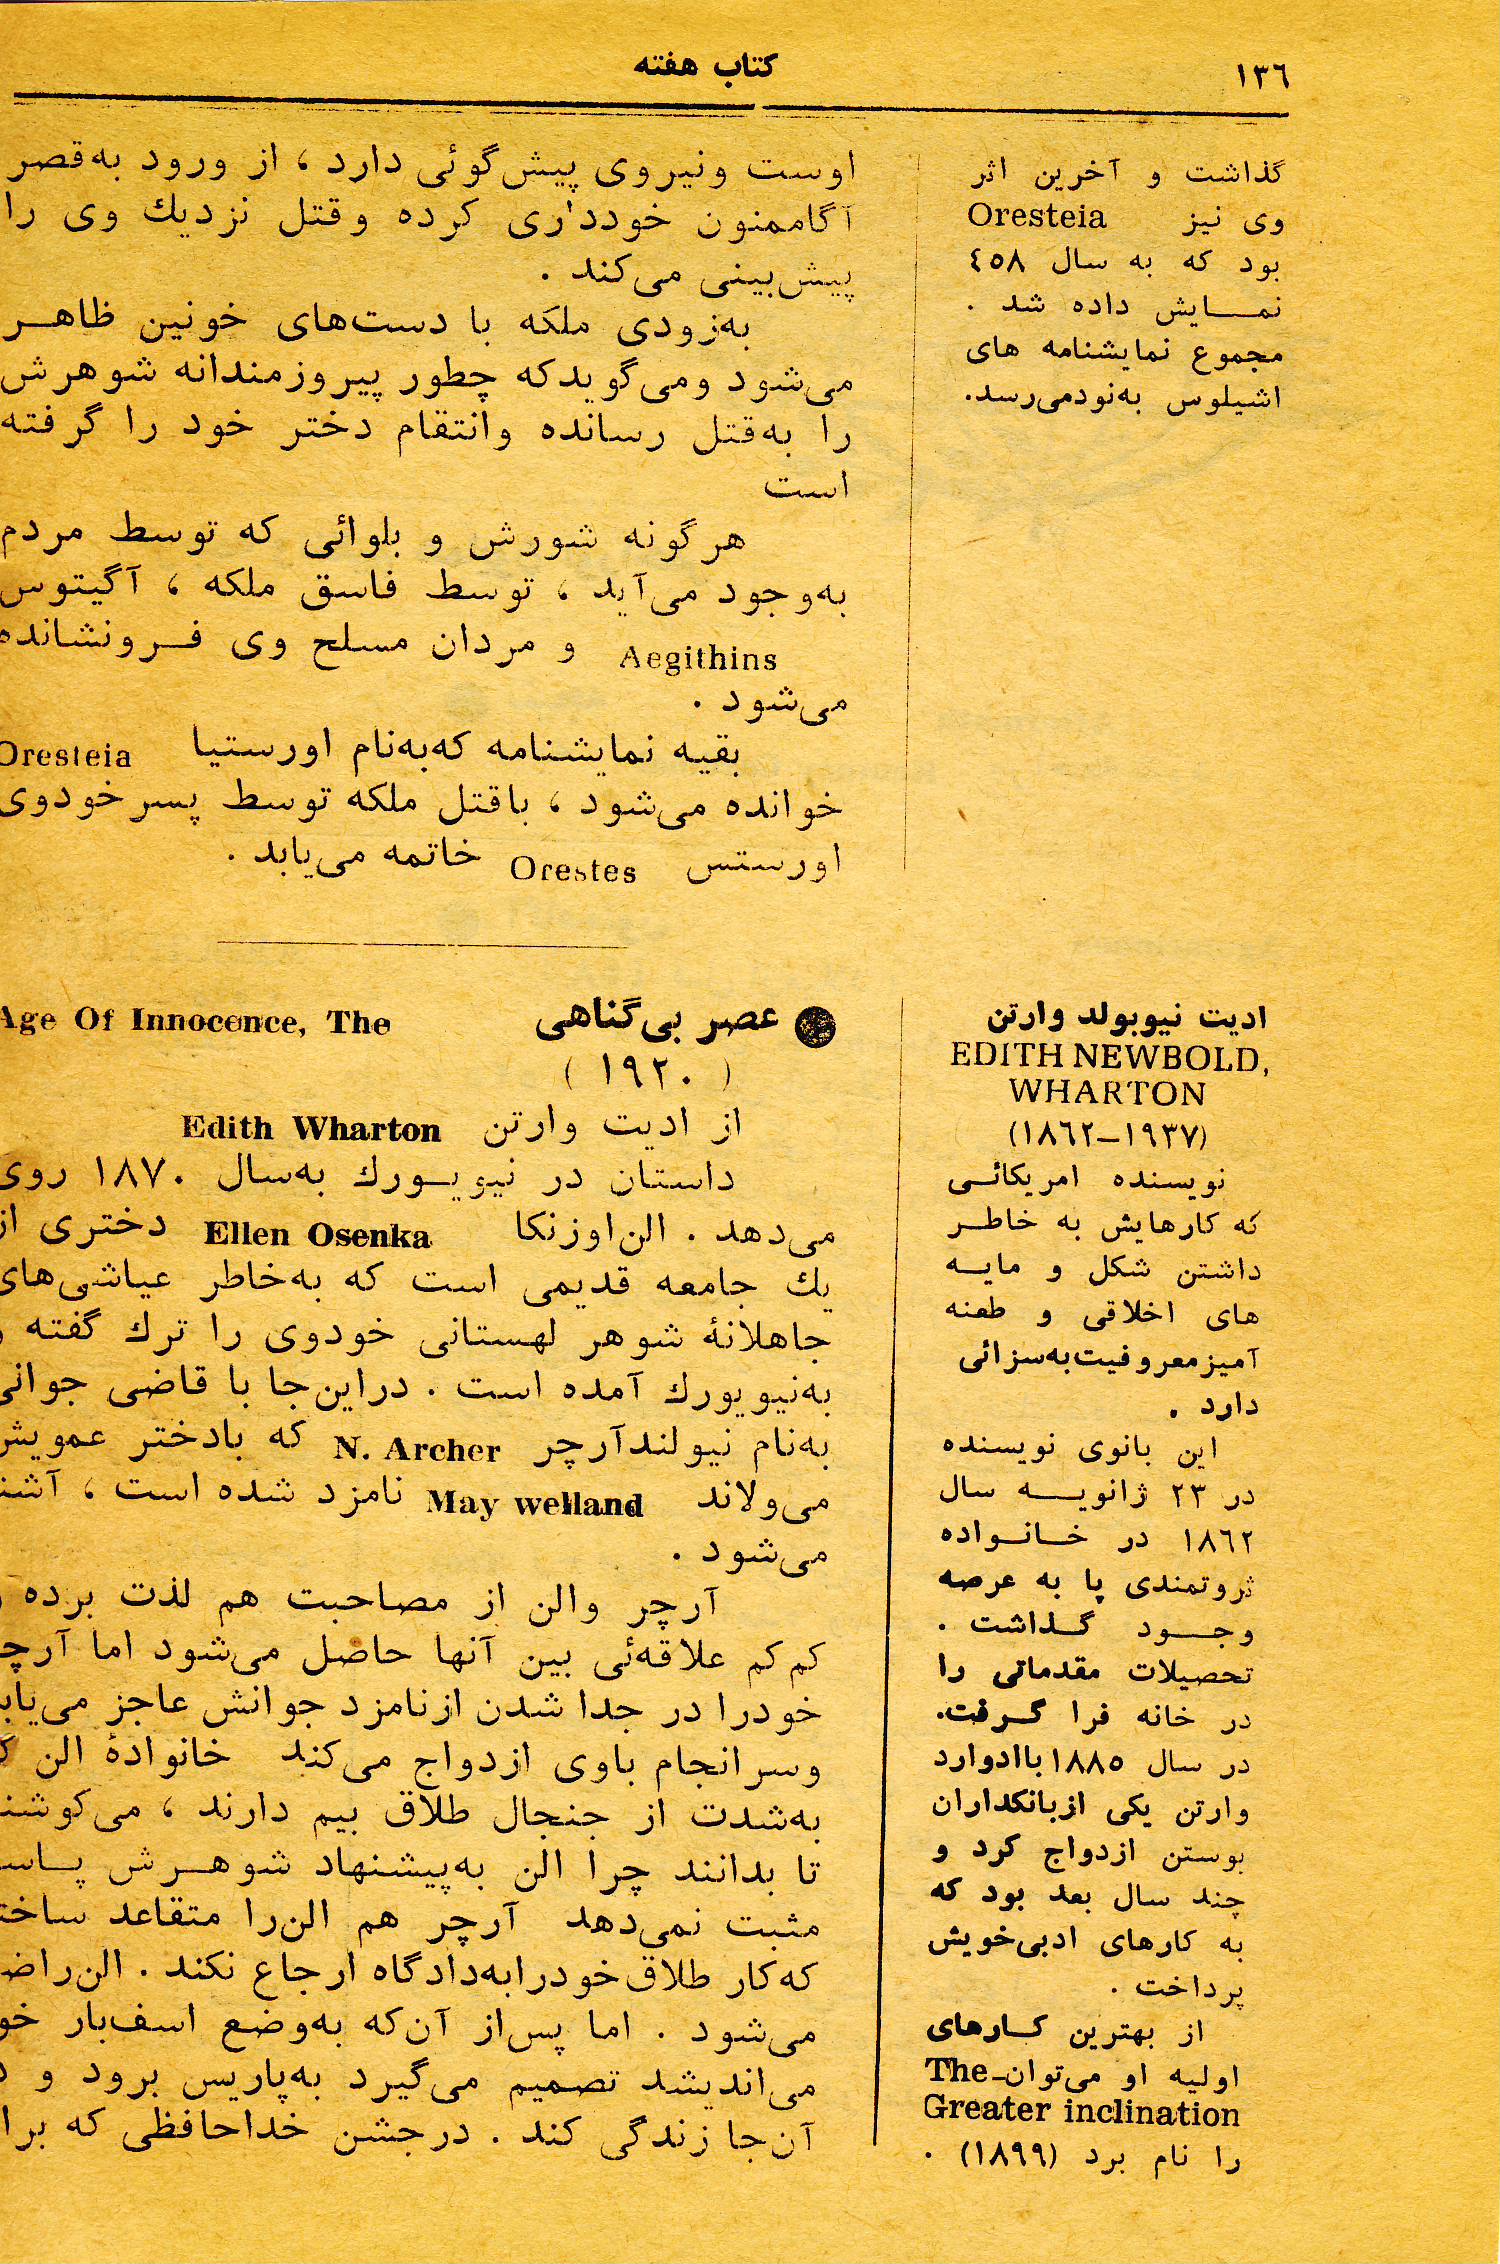 ١٣٦
كتاب هفته
گذاشت و آخرين اثر
وى نيز Oresteia
بود كه به سال ٤٥٨
نمــايش داده شد .
مجموع نمايشنامه هاى
اشيلوس به‌نودمى‌رسد.
اوست ونيروى پيش‌گوئى دارد ، از ورود به‌قصر
آگاممنون خوددارى كرده وقتل نزديك وى را
پيش‌بينى مى‌كند .
به‌زودى ملكه با دست‌هاى خونين ظاهــر
مى‌شود ومى‌گويدكه چطور پيروزمندانه شوهرش
را به‌قتل رسانده وانتقام دختر خود را گرفته
است
هرگونه شورش و بلوائى كه توسط مردم
به‌وجود مى‌آيد ، توسط فاسق ملكه ، آگيتوس
Aegithins و مردان مسلح وى فــرونشانده
مى‌شود .
بقيه نمايشنامه كه‌به‌نام اورستيا Oresteia
خوانده مى‌شود ، باقتل ملكه توسط پسرخودوى
اورستس Orestes خاتمه مى‌يابد .
اديت نيوبولد وارتن
EDITH NEWBOLD,
WHARTON
(١٨٦٢–١٩٣٧)
نويسنده امريكائــى
كه كارهايش به خاطــر
داشتن شكل و مايــه
هاى اخلاقى و طعنه
آميزمعروفيت‌به‌سزائى
دارد .
اين بانوى نويسنده
در ٢٣ ژانويـــه سال
١٨٦٢ در خــانــواده
ثروتمندى پا به عرصه
وجــود گــذاشت .
تحصيلات مقدماتى را
در خانه فرا گــرفت.
در سال ١٨٨٥ باادوارد
وارتن يكى ازبانكداران
بوستن ازدواج كرد و
چند سال بعد بود كه
به كارهاى ادبى‌خويش
پرداخت .
از بهترين كــارهاى
اوليه او مى‌توان-The
Greater inclination
را نام برد (١٨٩٩) .
● عصر بى‌گناهى Age Of Innocence, The
( ١٩٢٠ )
از اديت وارتن Edith Wharton
داستان در نيويــورك به‌سال ١٨٧٠ روى
مى‌دهد . الن‌اوزنكا Ellen Osenka دخترى از
يك جامعه قديمى است كه به‌خاطر عياشى‌هاى
جاهلانهٔ شوهر لهستانى خودوى را ترك گفته و
به‌نيويورك آمده است . دراين‌جا با قاضى جوانى
به‌نام نيولندآرچر N. Archer كه بادختر عمويش
مى‌ولاند May welland نامزد شده است ، آشن
مى‌شود .
آرچر والن از مصاحبت هم لذت برده و
كم‌كم علاقه‌ئى بين آنها حاصل مى‌شود اما آرچ
خودرا در جدا شدن ازنامزد جوانش عاجز مى‌ياب
وسرانجام باوى ازدواج مى‌كند خانوادهٔ الن ك
به‌شدت از جنجال طلاق بيم دارند ، مى‌كوشند
تا بدانند چرا الن به‌پيشنهاد شوهــرش پــاس
مثبت نمى‌دهد آرچر هم الن‌را متقاعد ساخت
كه‌كار طلاق‌خودرابه‌دادگاه ارجاع نكند . الن‌راض
مى‌شود . اما پس‌از آن‌كه به‌وضع اسف‌بار خو
مى‌انديشد تصميم مى‌گيرد به‌پاريس برود و د
آن‌جا زندگى كند . درجشن خداحافظى كه برا